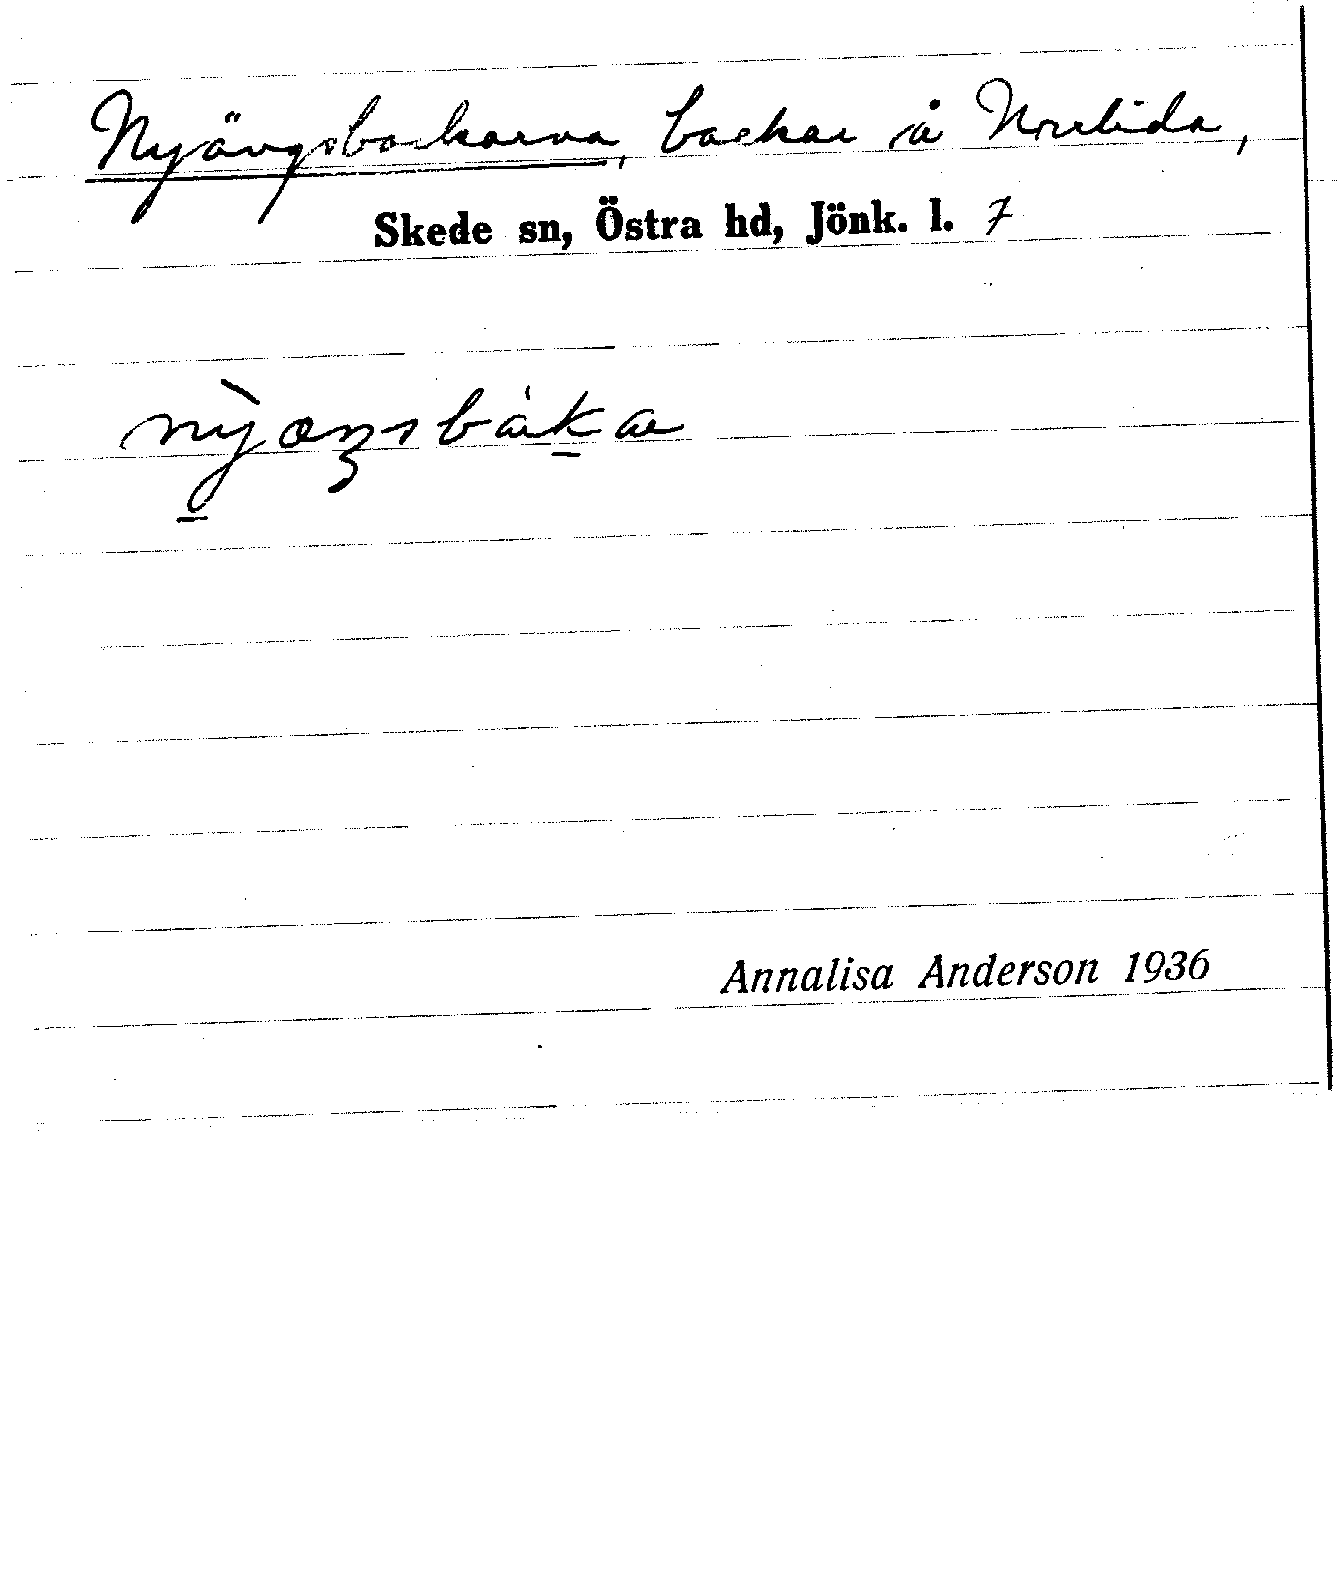 Nyängsbackarna, backar å Norrlida,
Skede sn, Östra hd, Jönk. l. 7
nỳæŋsbákar
Annalisa Anderson 1936